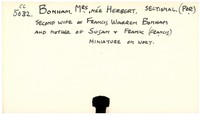 CC
5082.
BONHAM, MRS, NÉE HERBERT, SECTIONAL, (POR)
SECOND WIFE OF FRANCIS WARREN BONHAM
AND MOTHER OF SUSAN & FRANK (FRANCIS)
MINIATURE ON IVORY.